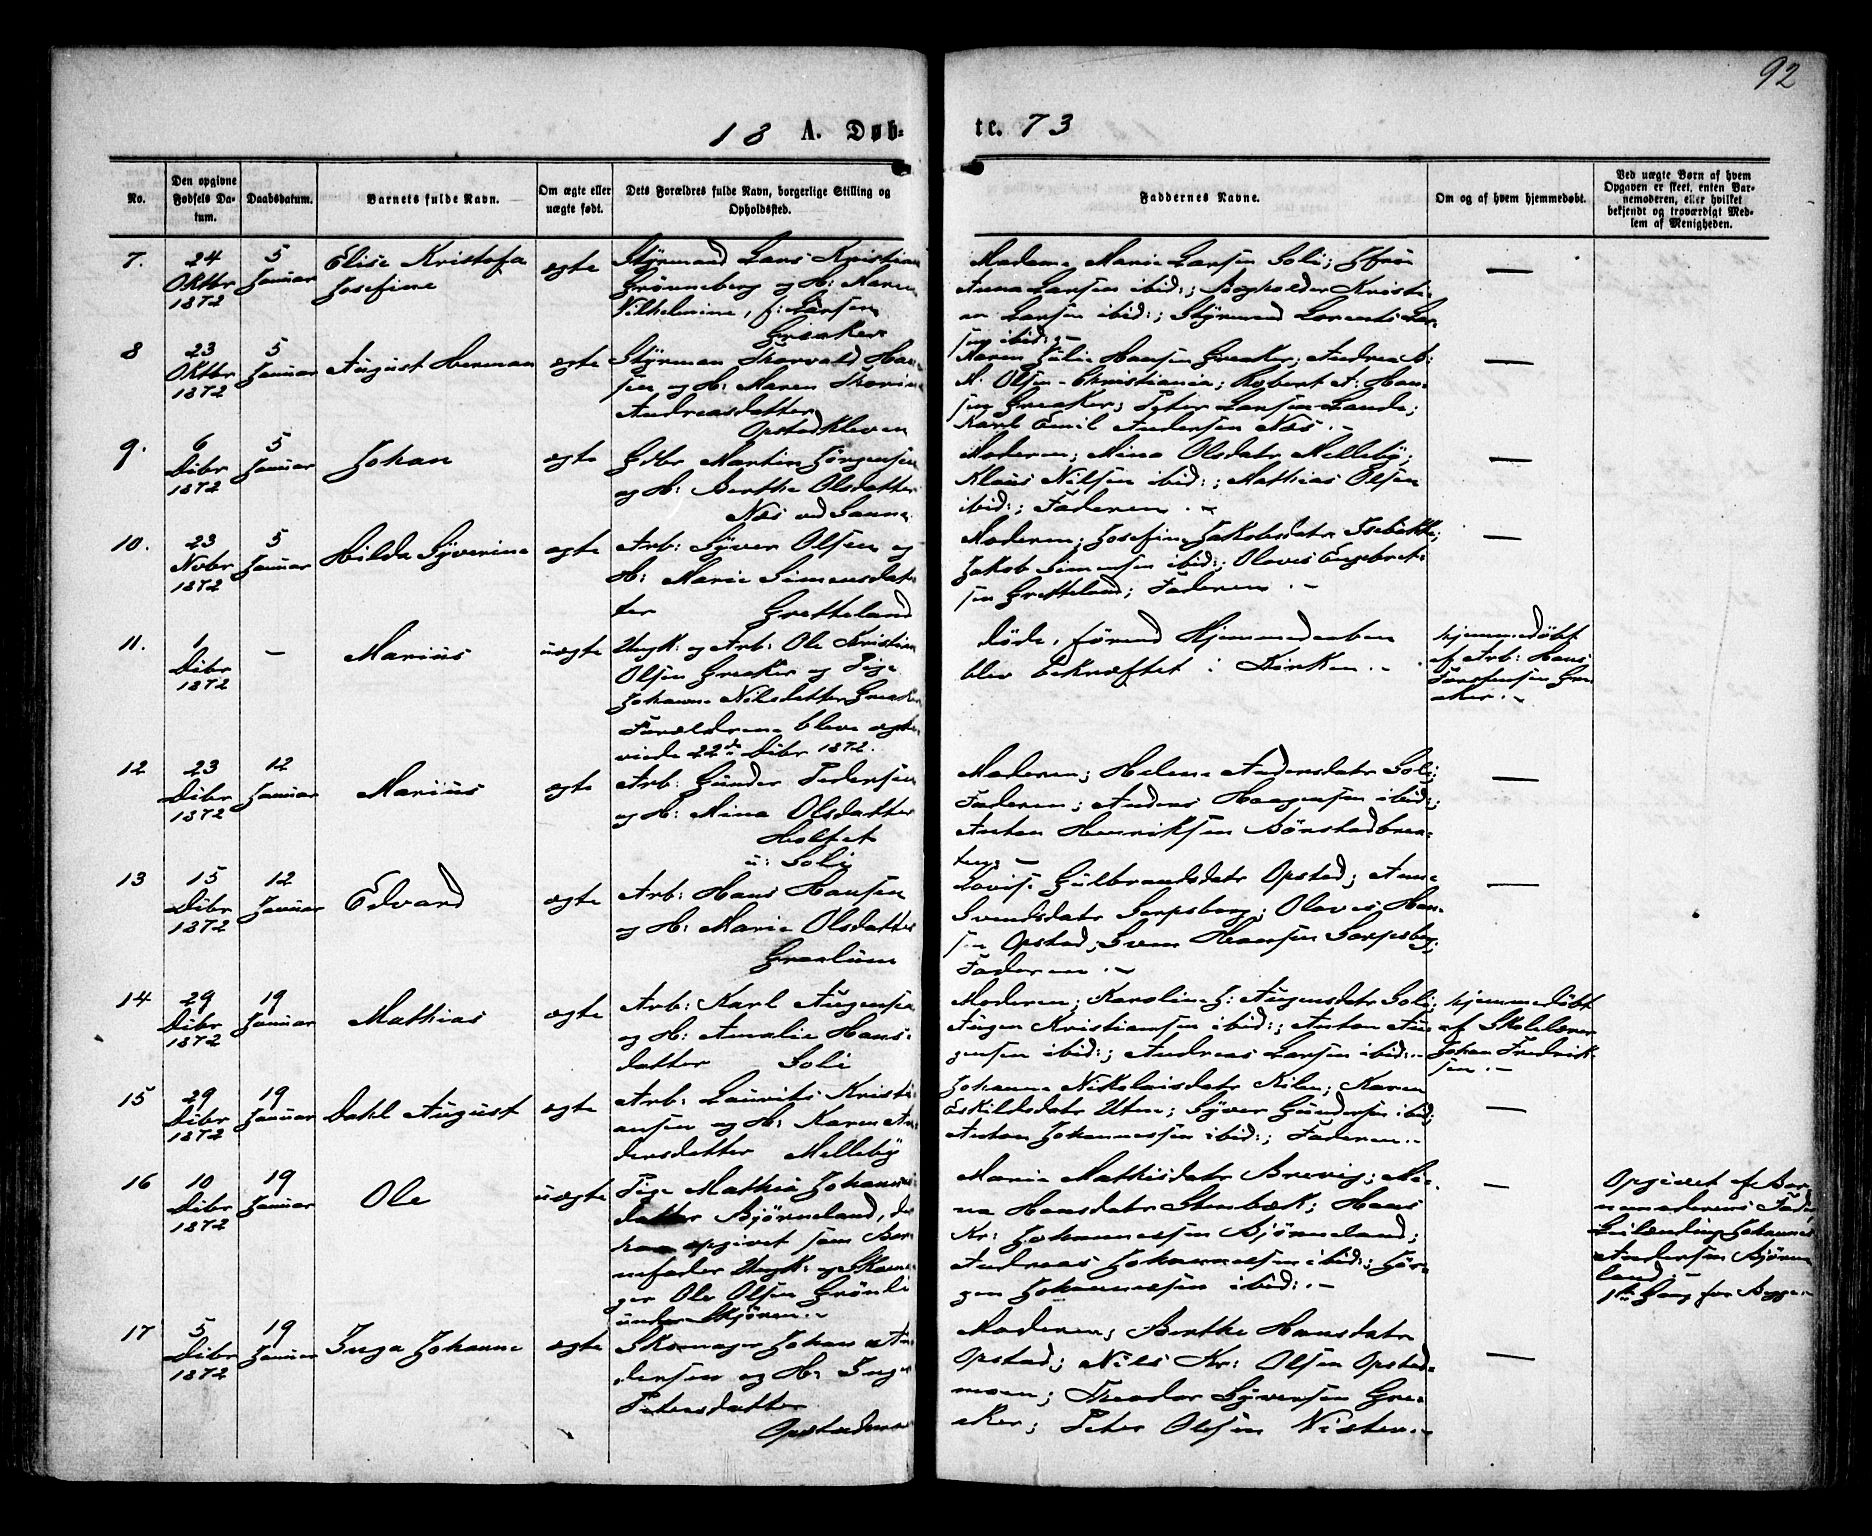 92
18 A. Døb- te. 73
No.
Den opgivne Fødsels Da-tum.
Daabsdatum.
Barnets fulde Navn.
Om ægte eller uægte født.
Dets Forældres fulde Navn, borgerlige Stilling og Opholdssted.
Faddernes Navne.
Om og af hvem hjemmedøbt.
Ved uægte Børn af hvem Opgaven er skeet, enten Bar-nemoderen, eller hvilket bekjendt og troværdigt Med-lem af Menigheden.
7.
24 Oktbr 1872
5 Januar
Elise Kristofa
Josefine
ægte
Styrmand Lars Kristian
Grønneberg og H: Maren
Vilhelmine, f: Larsen
Greaker
Madame Marie Larsen Soli; Jfru
Anna Larsen ibid:; Bogholder Kristi-
an Larsen ibid:; Styrmand Lorents Lar-
sen ibid:-
—
8
23 Oktbr 1872
5 Januar
August Herman
ægte
Styrman Thorvald Han-
sen og H: Maren
Andreasdatter
Opstadkleven
Karen Julie Hansen Greaker; Andrea
M. Olsen-Christiania; Robert A: Han-
sen Greaker; Peter Larsen Lande;
Karl Emil Andersen Næs.-
—
9.
6 Dcbr 1872
5 Januar
Johan
ægte
Gdbr Martin Jørgensen
og H: Berthe Olsdatter
Næs ved Sanne
Moderen; Mina Olsdatr Melleby;
Klaus Nilsen ibid:; Mathias Olsen
ibid:; Faderen.-
—
10.
23 Nvbr 1872
5 Januar
Hilda Syverine
ægte
Arb: Syver Olsen og
H: Marie Simensdat-
ter Gretteland
Moderen; Josefine Jakobsdatr Isebakke;
Jakob Simensen ibid:; Olaves Engebret-
sen Gretteland; Faderen.-
—
11.
1 Dcbr 1872
-
Marius
uægte
Ungk: og Arb: Ole Kristian
Olsen Greaker og Pige
Johanne Nilsdatter Greaker
Forældrene bleve ægte-
viede 22de Dcbr 1872.
døde, førend Hjemmedaaben
blev bekræftet i Kirken.-
hjemmedøbt
af Arb: Hans
Gre-
aker.-
12
23 Dcbr 1872
12 Januar
Marius
ægte
Arb: Gunder Pedersen
og H: Mina Olsdatter
u: Soli
Moderen; Helene Andersdatr Soli;
Faderen; Anders Haagensen ibid:;
Anton Henriksen Børstadbraa-
ten;-
—
13
15 Dcbr 1872
12 Januar
Edvard
ægte
Arb: Hans Hansen
og H: Marie Olsdatter
Graalum
Lovise Gulbrandsdatr Opstad; Anne
Svendsdatr Sarpsborg; Olaves Han-
sen Opstad; Sven Hansen Sarpsborg;
Faderen.-
—
14
29 Dcbr 1872
19 Januar
Mathias
ægte
Arb: Karl Augensen
og H: Amalie Hans-
datter Soli
Moderen; Karoline J: Augensdatr Soli;
Augen Kristiansen ibid:; Anton Au-
gensen ibid:; Andreas Larsen ibid:.-
hjemmedøbt
af Skolelærer
Johan Fredrik-
sen.-
15
29 Dcbr 1872
19 Januar
Dahl August
ægte
Arb: Laurits Kristi-
ansen og H: Karen An-
dersdatter Melleby
Johanne Nikolaisdatr Kilen; Karen
Eskildsdatr Utne; Syver Gundersen ibid:;
Anton Johannessen ibid:; Faderen.-
—
16
10 Dcbr 1872
19 Januar
Ole
uægte
Pige Mathea Johannes-
datter Bjørneland, der
har opgivet som Bar-
nefader Ungk: og Skoma-
ger Ole Olsen Grønli
under Skjøren.-
Marie Mathisdatr Brevig;
Hansdatr Stenbæk; Hans
Kr: Johannessen Bjørneland;
Andreas Johannessen ibid:; Jør-
gen Johannessen ibid:.-
—
Opgivet af Bar-
nemoderens Fader
Leilænding Johannes
Andersen Bjørne-
land.-
1ste Gang for Begge.-
17
5 Dcbr 1872
19 Januar
Inga Johanne
ægte
Skomager Johan An-
dersen og H: Inger
Petersdatter
Moderen; Berthe Hansdatr
Opstad; Nils Kr: Olsen Opstad-
moen; Theodor Syversen Gre-
aker; Peter Olsen Nisten.-
—